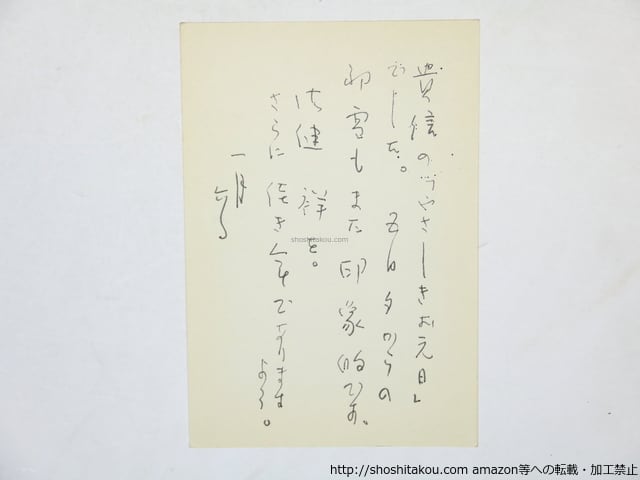 貴信の「やさしきお元日」
でした。五日夕からの
初雪もまた印象的です。
御健祥を。
さらに佳き年でありますよう。
一月六日
shoshitakou.com
http://shoshitakou.com amazon等への転載・加工禁止